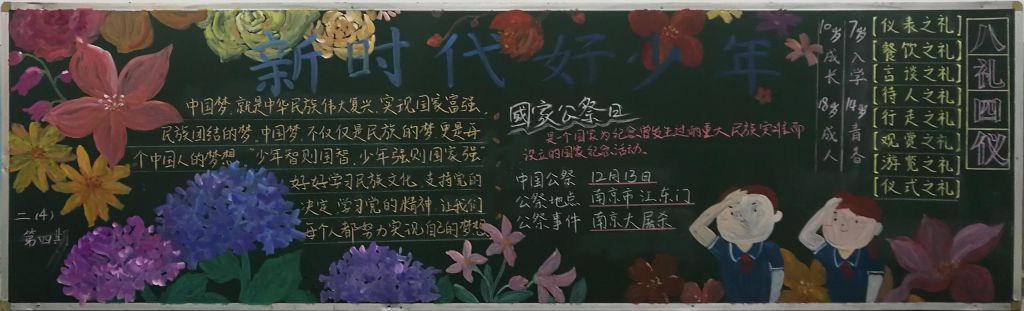 新时代好少年
中国梦,就是中华民族伟大复兴,实现国家富强、
民族团结的梦。中国梦不仅仅是民族的梦,更是每
个中国人的梦想。"少年智则国智,少年强则国家强"
好好学习民族文化,支持党的
决定,学习党的精神,让我们
每个人都努力实现自己的梦想
二(4)
第四期
國家公祭日
是一个国家为纪念曾发生过的重大民族灾难而
设立的国家纪念活动。
中国公祭 12月13日
公祭地点 南京市江东门
公祭事件 南京大屠杀
八礼四仪
仪表之礼
餐饮之礼
言谈之礼
待人之礼
行走之礼
观赏之礼
游览之礼
仪式之礼
7岁入学
14岁青春
10岁成长
18岁成人